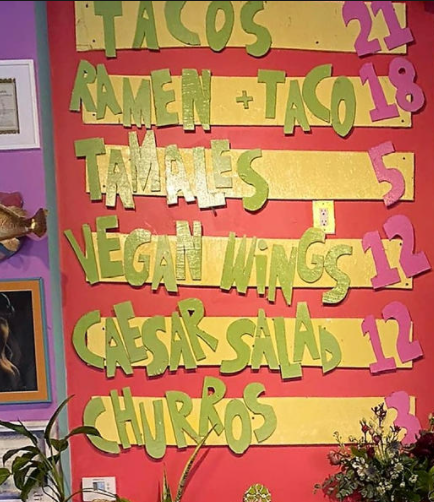 TACOS 21
RAMEN + TACO 18
TAMALES 5
VEGAN WINGS 12
CAESAR SALAD 12
CHURROS 3